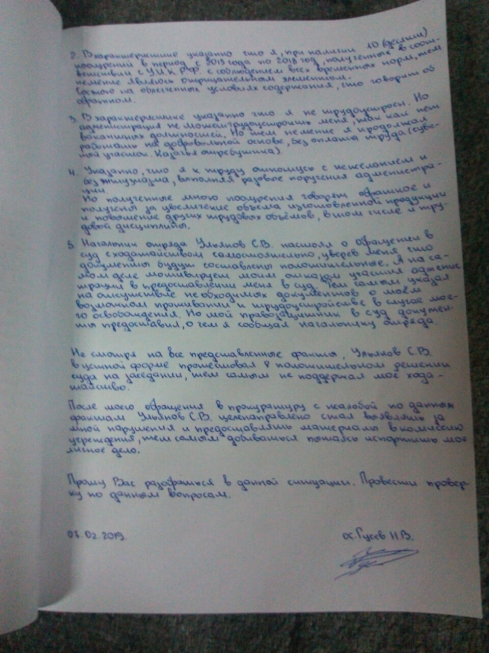 2. В характеристике указано что я, при наличии 10 (десяти)
поощрений в период с 2013 года по 2018 год, полученных в соот-
ветствии с УИК РФ, с соблюдением всех временных норм, тем
не менее являюсь отрицательным элементом.
на облегченных условиях содержания, что говорит об
обратном.
3. В характеристике указано что я не трудоустроен. Но
администрация не может трудоустроить меня, так как нет
вакантных должностей. Но тем не менее я продолжал
работать на добровольной основе, без оплаты труда (
участок.
4. Указанно, что я к труду отношусь с нежеланием и
без энтузиазма, выполняя разовое поручения администра-
ции
Но полученные мною поощрения говорят обратное и
получены за увеличение объема изготовленной продукции
и повышение других трудовых объёмов, в том числе и тру-
довой дисциплины.
5. Начальник отряда Ульянов С.В. настоял о обращении в
суд с ходатайством самостоятельно, уверев меня что
документы будут составлены положительные. А на са-
мом деле мотивируем моим отказом участия админис
трации в предоставлении меня в суд. Тем самым указал
на отсутствие необходимых документов о моём
возможном проживании и трудоустройстве в случае мое-
го освобождения. Но мой правозащитник в суд докумен-
ты предоставил, о чем я сообщал начальнику отряда.
Не смотря на все представленные факты, Ульянов С.В.
в устной форме о положительном решении
суда на заседании, тем самым не поддержал мое хода-
тайство.
После моего обращения в прокуратуру с жалобой по данным
фактам Ульянов С.В. целенаправлено стал выявлять за
мной нарушения и предоставлять материалы в комиссию
учреждения, тем самым пытаясь испортить мое
личное дело.
Прошу Вас разобраться в данной ситуации. Провести провер-
ку по данным вопросам.
02.2019. ос. Гусов Н.В.